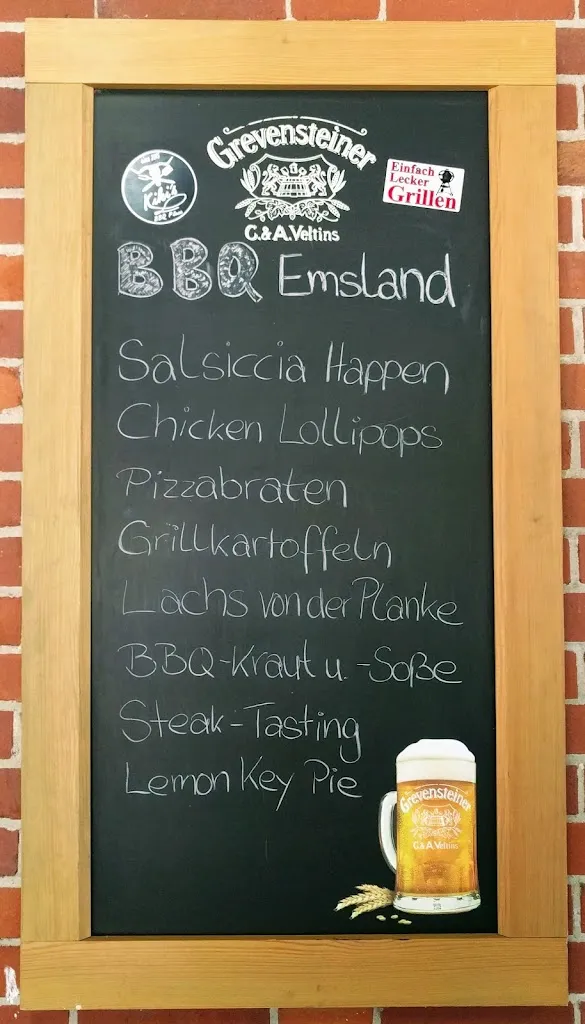 Grevensteiner
C.&A.Veltins
Kiki's
BBQ
Einfach
Lecker
Grillen
BBQ Emsland
Salsiccia Happen
Chicken Lollipops
Pizzabraten
Grillkartoffeln
Lachs von der Planke
BBQ-Kraut u. -Soße
Steak-Tasting
Lemon Key Pie
Grevensteiner
C.&A.Veltins